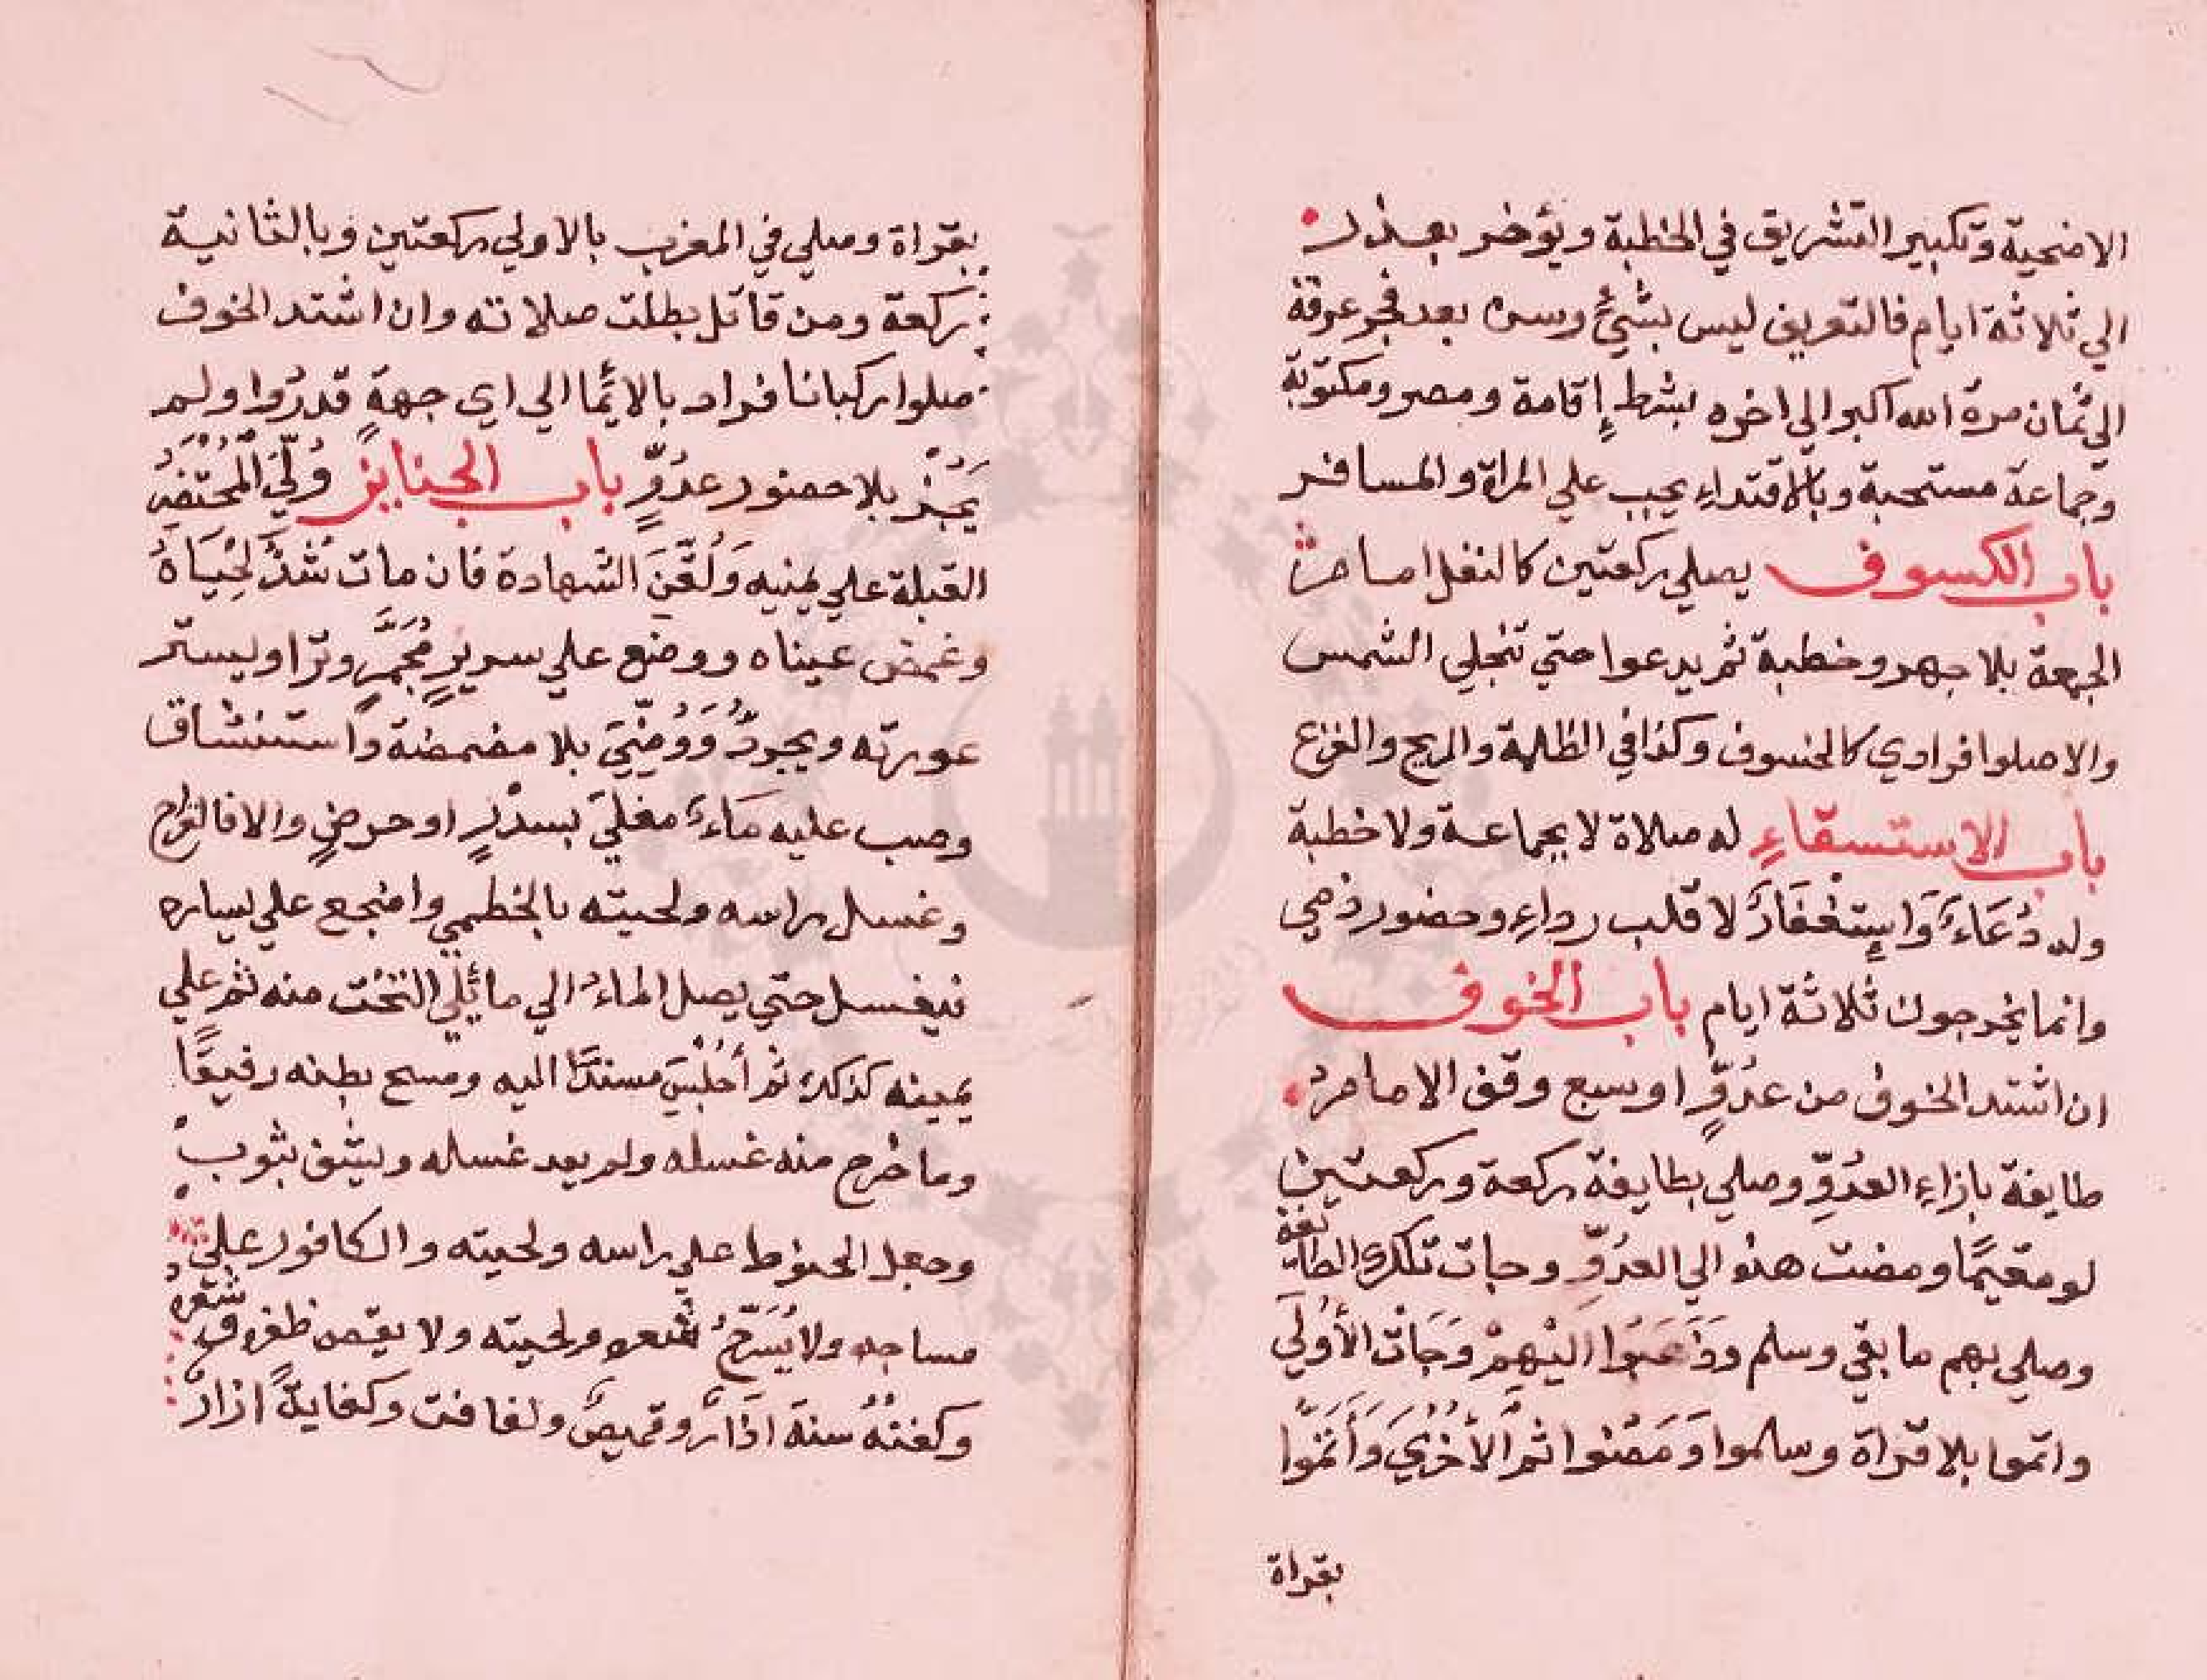 الاضحية وتكبير التشريق في الخطبة ويؤخر بعذر
الي ثلاثة ايام فالتعريف ليس بشيءٍ وسن بعد فجر عرفة
الي ثمان مرة الله اكبر الي اخره بشرط إقامة ومصر ومكتوبة
وجماعة مستحبة وبالاقتداءِ يجب علي المراة والمسافر
باب الكسوف يصلي ركعتين كالنفل امام
الجمعة بلا جهر وخطبة ثم يدعوا حتي تنجلي الشمس
والا صلوا فرادي كالخسوف وكذا في الظلمة والريح والفزع
باب الاستسقاءِ له صلاة لا بجماعة ولا خطبة
وله دُعَاءٌ وَاسِتغْفَارٌ لا قلب رداءِ وحضور ذمي
وانما يخرجون ثلاثة ايام باب الخوف
ان اشتد الخوف من عدُوٍّ او سبع وقف الامام
طايفة بازاءِ العدُوِّ وصلي بطايفة ركعة وركعتين
لو مقيمًا ومضت هذه الي العدُوِّ وجات تلك الطائفة
وصلي بهم ما بقي وسلم وذَهَبُوا اليْهِمْ وَجَاتْ الأُولَي
واتموا بلا قراة وسلموا وَمَضوا ثمَّ الأُخْرَيَ وَأَتمَوّا
بقراة
بقراة وصلي في المغرب بالاولي ركعتين وبالثانية
ركعة ومن قاتل بطلت صلاته وان اشتد الخوف
صلوا ركبانا فراد بالايمَا الي اي جهةٍ قدرُوا ولم
يَجُزْ بلا حضور عدُوٍّ باب الجنايز وُلّيَ الْمُحْتَضَرُ
القبلة علي يمينه وَلُقّنَ الشهادة فان مات شُدَّ لَحْيَاهُ
وغمض عيناه ووضع علي سريرٍ مُجَمَّرٍ وترًا ويستر
عورته ويجردُ وَوُضِّيَ بلا مضمضة واستنشاق
وصب عليه مَاءٌ مغليَ بسدْرٍ او حرضٍ والا فالقراح
وغسل راسه ولحيته بالخطمي واضجع علي يساره
فيغسل حتي يصل الماءُ الي ما يلي التخْت منه ثم علي
يمينه كذلك ثم أُجْلِسَ مسندًا اليه ومسح بطنه رفيقًا
وما خرج منه غسله ولم يعد غسله وينشف بثوب
وجعل الحنوط علي راسه ولحيته والكافور علي
مساجده ولا يُسَرَّحُ شعره ولحيته ولا يقص ظفره و شعره
وكفنُهُ سنة ازَارٌ وقميصٌ ولفافت وكفايةً ازارٌ